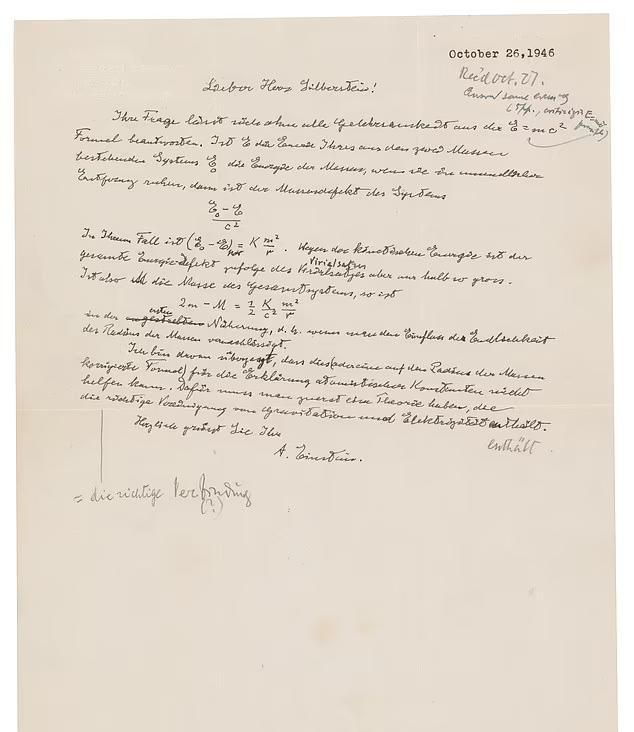 October 26, 1946
Rec'd Oct. 27.
Answ'd same evening
Lieber Herr Silberstein!
Ihre Frage lässt sich ohne alle Gelehrsamkeit aus der E = mc²
Formel beantworten. Ist E die Energie Ihres aus den zwei Massen
bestehenden Systems E₀ die Energie der Massen, wenn sie in unendlicher
Entfernung ruhen, dann ist der Massendefekt des Systems
E₀ – E
c²
In Ihrem Fall ist (E₀ – E) = K m²/r. Wegen der kinetischen Energie ist der
gesamte Energie-Defekt zufolge des Virialsatzes aber nur halb so gross.
Virialsatzes
Ist also M die Masse des Gesamtsystems, so ist
2m – M = 1/2 K/c² m²/r
in der ersten Näherung, d. h. wenn man den Einfluss der Endlichkeit
des Radius der Massen vernachlässigt.
Ich bin davon überzeugt, dass dies (oder eine auf den Radius der Massen
korrigierte Formel) für die Erklärung atomistischer Konstanten nicht
helfen kann. Dafür muss man zuerst eine Theorie haben, die
die richtige Vereinigung von Gravitation und Elektrizität enthält.
enthält
Herzlich grüsst Sie Ihr
A. Einstein.
= die richtige Verbindung
(?)